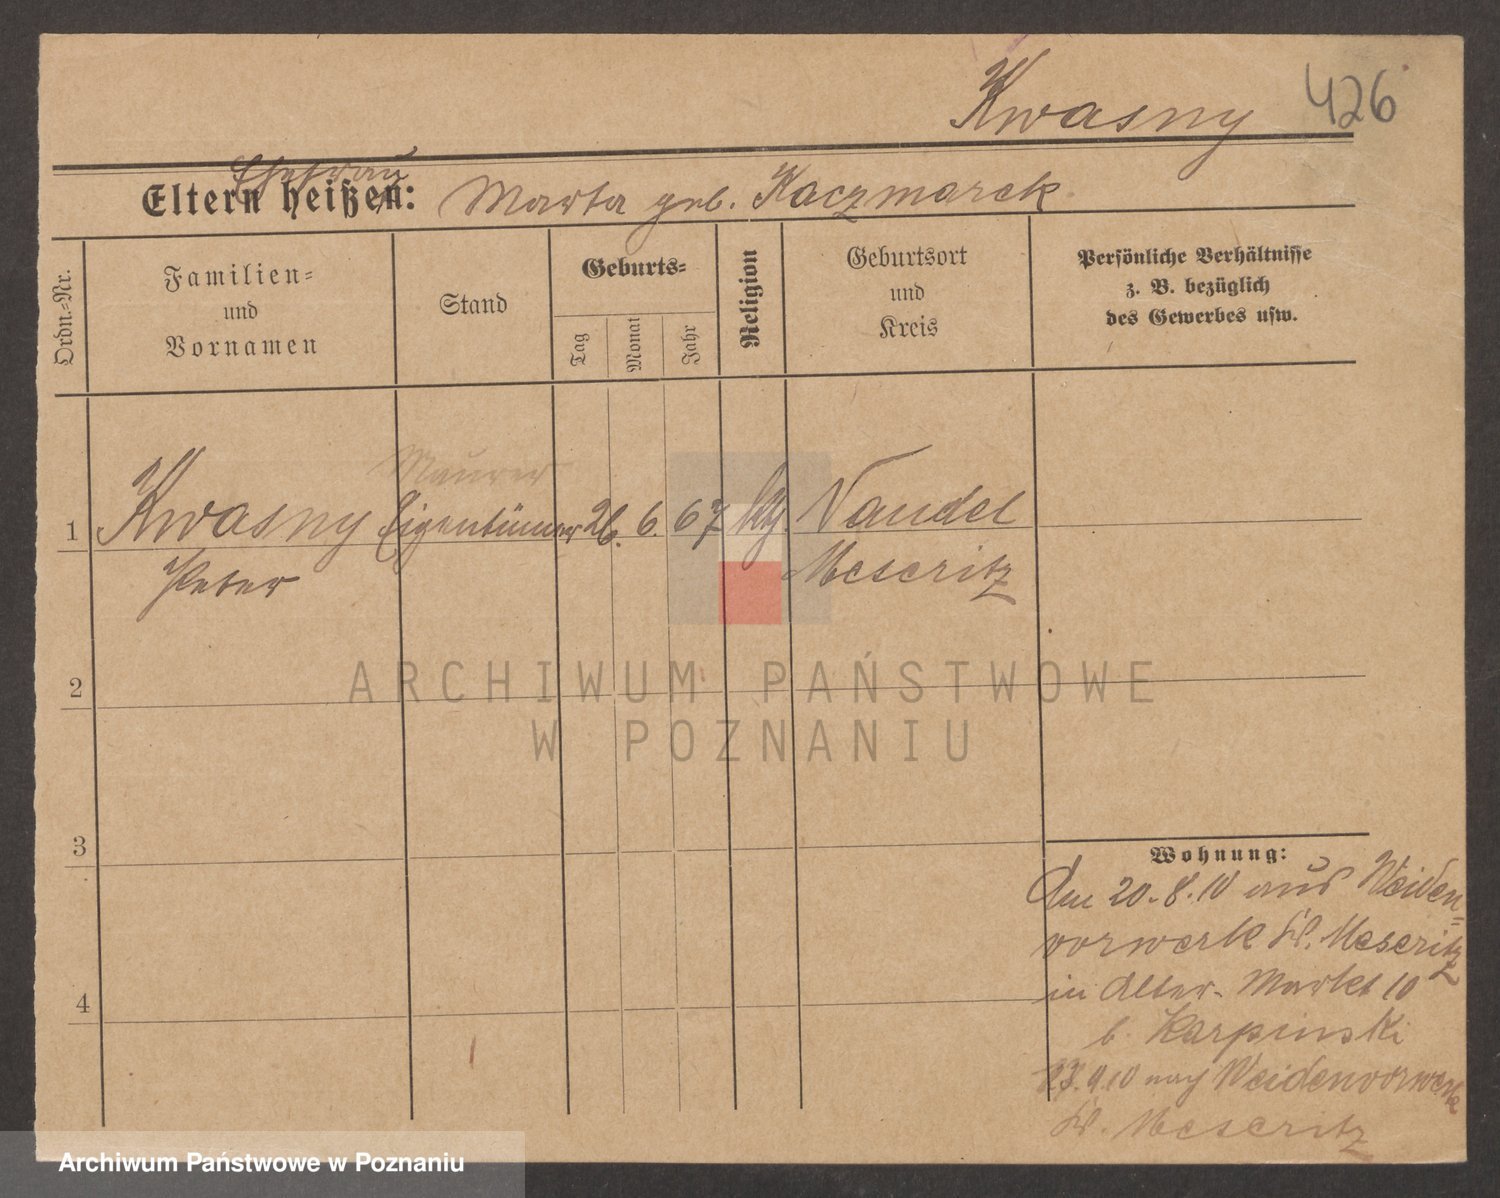 Kwasny 426
Ehefrau
Eltern heißen: Marta geb. Kaczmarek
Ordn.-Nr.
Familien-
und
Vornamen
Stand
Geburts-
Tag
Monat
Jahr
Religion
Geburtsort
und
Kreis
Persönliche Verhältnisse
z. B. bezüglich
des Gewerbes usw.
Maurer
1 Kwasny Eigentümer 26. 6. 67 kth. Naudel
Peter Meseritz
2
3
4
Wohnung:
Am 20.8.10 aus Weiden-
vorwerk Kr. Meseritz
in Alter-Markt 10
b. Karpinski
23.9.10 nach Weidenvorwerk
Kr. Meseritz
ARCHIWUM PAŃSTWOWE
W POZNANIU
Archiwum Państwowe w Poznaniu